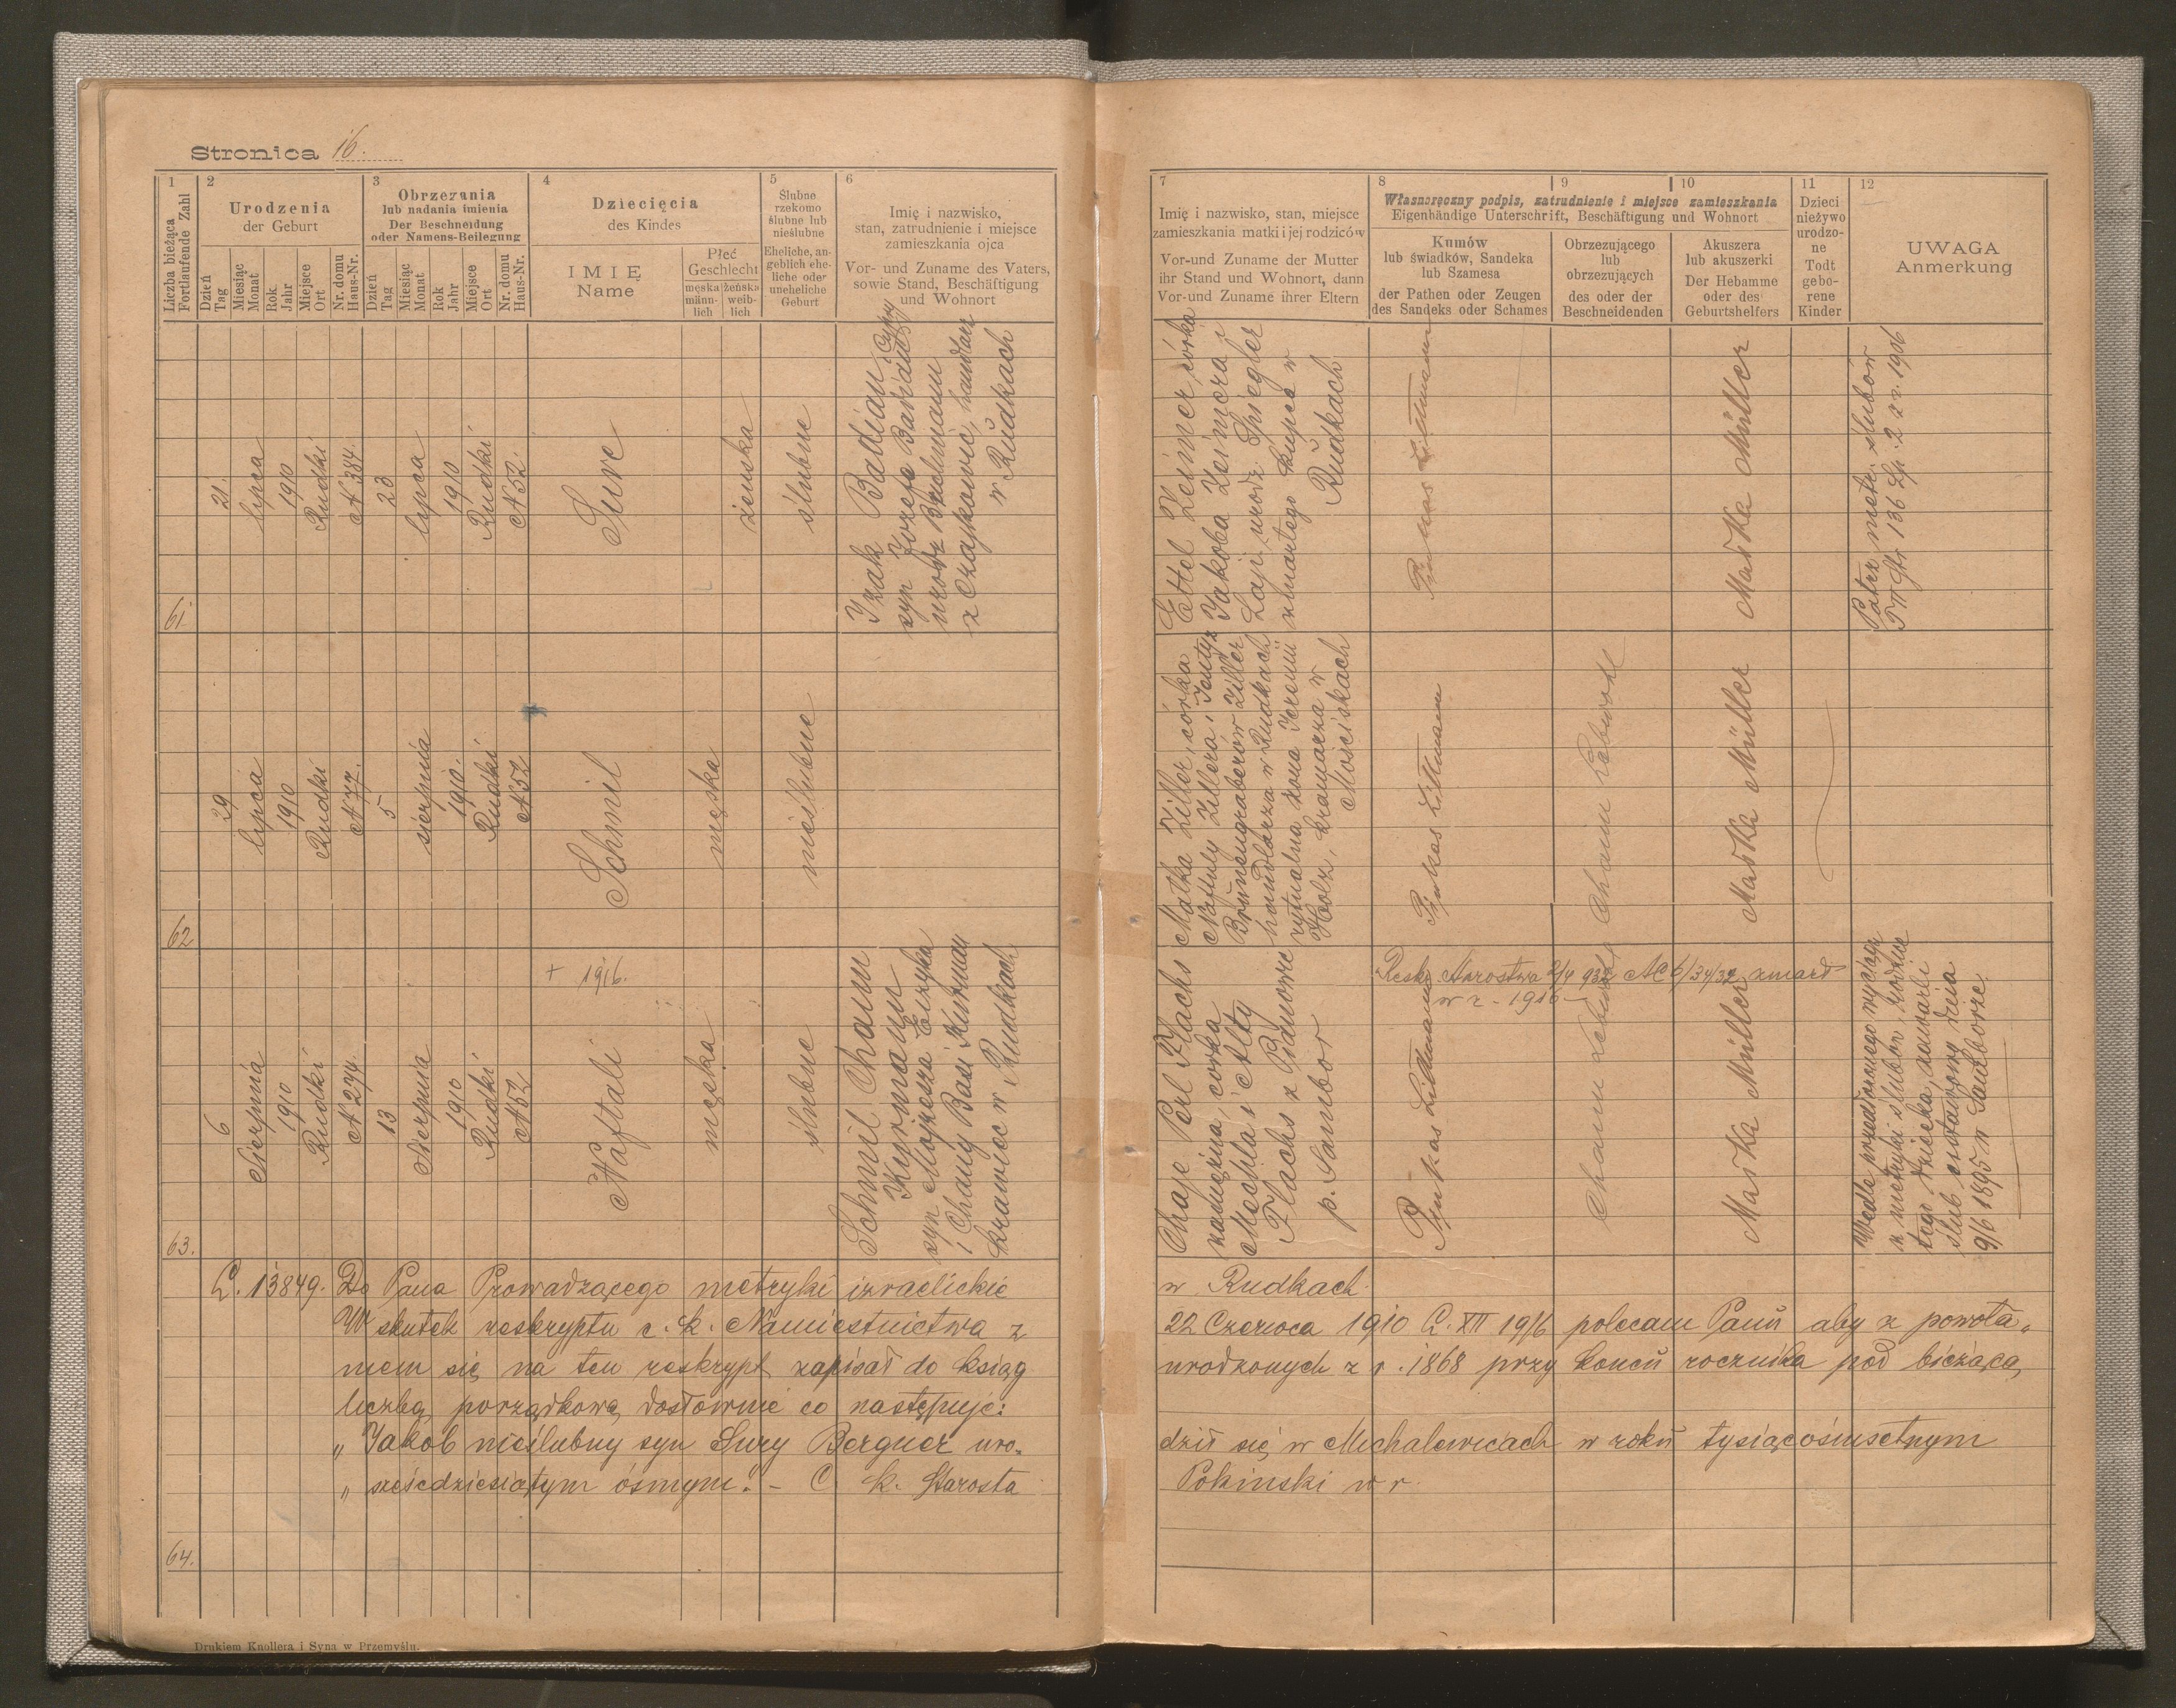 Stronica 16.
1
Liczba bieżąca
Fortlaufende Zahl
2
Urodzenia
der Geburt
Dzień
Tag
Miesiąc
Monat
Rok
Jahr
Miejsce
Ort
Nr. domu
Haus-Nr.
3
Obrzezania
lub nadania imienia
Der Beschneidung
oder Namens-Beilegung
Dzień
Tag
Miesiąc
Monat
Rok
Jahr
Miejsce
Ort
Nr. domu
Haus-Nr.
4
Dziecięcia
des Kindes
IMIĘ
Name
Płeć
Geschlecht
męska
männ-
lich
żeńska
weib-
lich
5
Ślubne
rzekomo
ślubne lub
nieślubne
Eheliche, an-
geblich ehe-
liche oder
uneheliche
Geburt
6
Imię i nazwisko,
stan, zatrudnienie i miejsce
zamieszkania ojca
Vor- und Zuname des Vaters,
sowie Stand, Beschäftigung
und Wohnort
7
Imię i nazwisko, stan, miejsce
zamieszkania matki i jej rodziców
Vor-und Zuname der Mutter
ihr Stand und Wohnort, dann
Vor-und Zuname ihrer Eltern
8
9
10
Własnoręczny podpis, zatrudnienie i miejsce zamieszkania
Eigenhändige Unterschrift, Beschäftigung und Wohnort
Kumów
lub świadków, Sandeka
lub Szamesa
der Pathen oder Zeugen
des Sandeks oder Schames
Obrzezującego
lub
obrzezujących
des oder der
Beschneidenden
Akuszera
lub akuszerki
Der Hebamme
oder des
Geburtshelfers
11
Dzieci
nieżywo
urodzo-
ne
Todt
gebo-
rene
Kinder
12
UWAGA
Anmerkung
61
21.
lipca
1910
Rudki
N 384.
23
lipca
1910
Rudki
N 52.
Sure
żeńska
ślubne
Izak Baldian
syn Józefa i Cypy
urodz
z Czajkowic, handlarz
w Rudkach
Ettel Zeimer córka
Jakóba Zeimera i
Łaji urodz. Spiegler
zmarłego kupca w
Rudkach
Pinkas Littmann
Maśka Müller
Patrz metr. ślubów
T III Str 136 Lp. 2 z r. 1906
62
29
lipca
1910
Rudki
N 77.
5
sierpnia
1910.
Rudki
N 52
Schmil
męska
nieślubne
Małka Ziller, córka
Naftuly Zillera i Jentyz
Brünnengraberów Ziller
handlarza w Rudkach
rytualna żona Jeremii
Holz, kramarza w
Mościskach
Pinkas Littmann
Chaim
Maśka Müller
63.
6
Sierpnia
1910
Rudki
N 274.
13
Sierpnia
1910
Rudki
N 52
+ 1916.
Naftali
męska
ślubne
Schmil Chaim
Kurzmann
syn Mojżesza Eizyka
i Chany Basi Kurzman
krawiec w Rudkach
Chaje Perl Flachs
zamężna, córka
Mechla i Alty
Flachs z Pianowic
p. Sambor
Reskr. Starostwa 2/4 932 AC 6/34/32 zmarł
w r - 1916 -
Pinkas Littmann
Chaim
Maśka Müller
Wedle przedłożonego wyciągu
z metryki ślubów, rodzice
tego dziecka, zawarli
ślub cywilny dnia
9/6 1895 w Samborze
64.
L. 13849. Do Pana Prowadzącego metryki izraelickie w Rudkach.
W skutek reskryptu c. k. Namiestnictwa z 22 Czerwca 1910 L. XII 1916 polecam Panu aby z powoła„
niem się na ten reskrypt zapisał do ksiąg urodzonych z r. 1868 przy końcu rocznika pod bieżącą,
liczbą porządkową dosłownie co następuje:
„ Jakób nieślubny syn Sury Bergner uro„ dził się w Michalewicach w roku tysiącośmsetnym
„ sześćdziesiątym ósmym." - C. k. Starosta Pokiński w r.
Drukiem Knollera i Syna w Przemyślu.